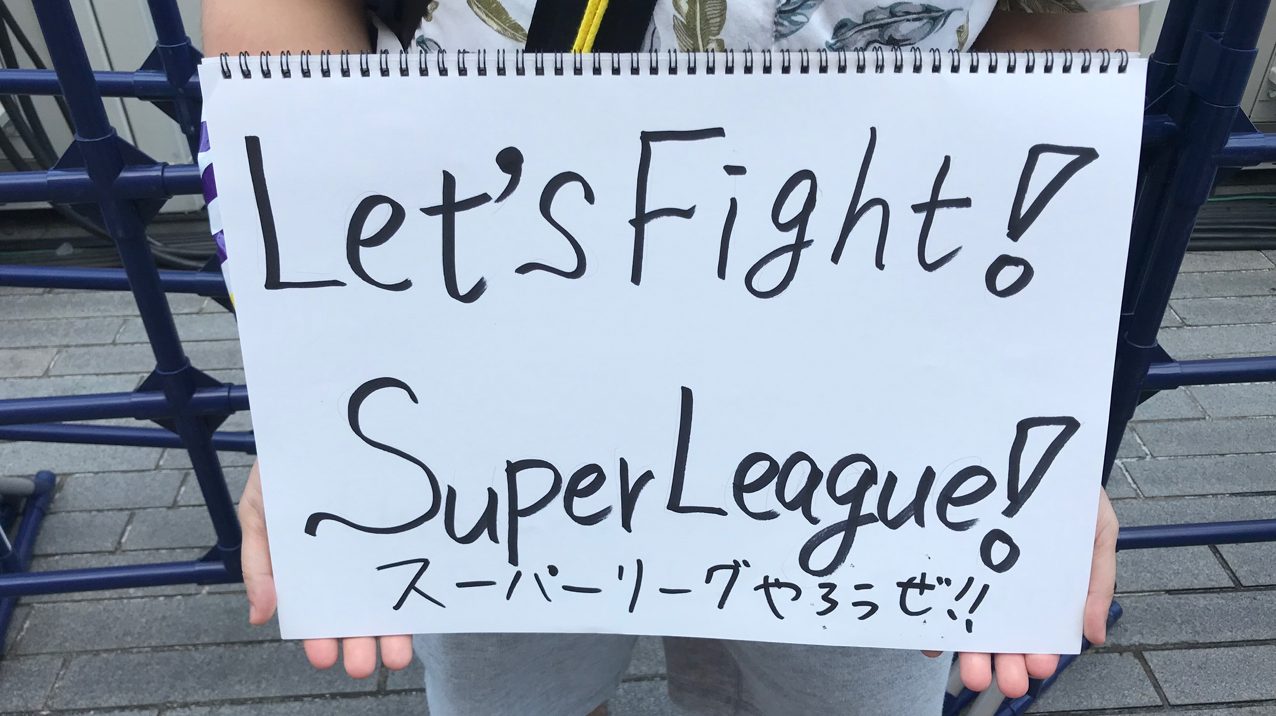 Let's Fight!
Super League!
スーパーリーグやろうぜ!!